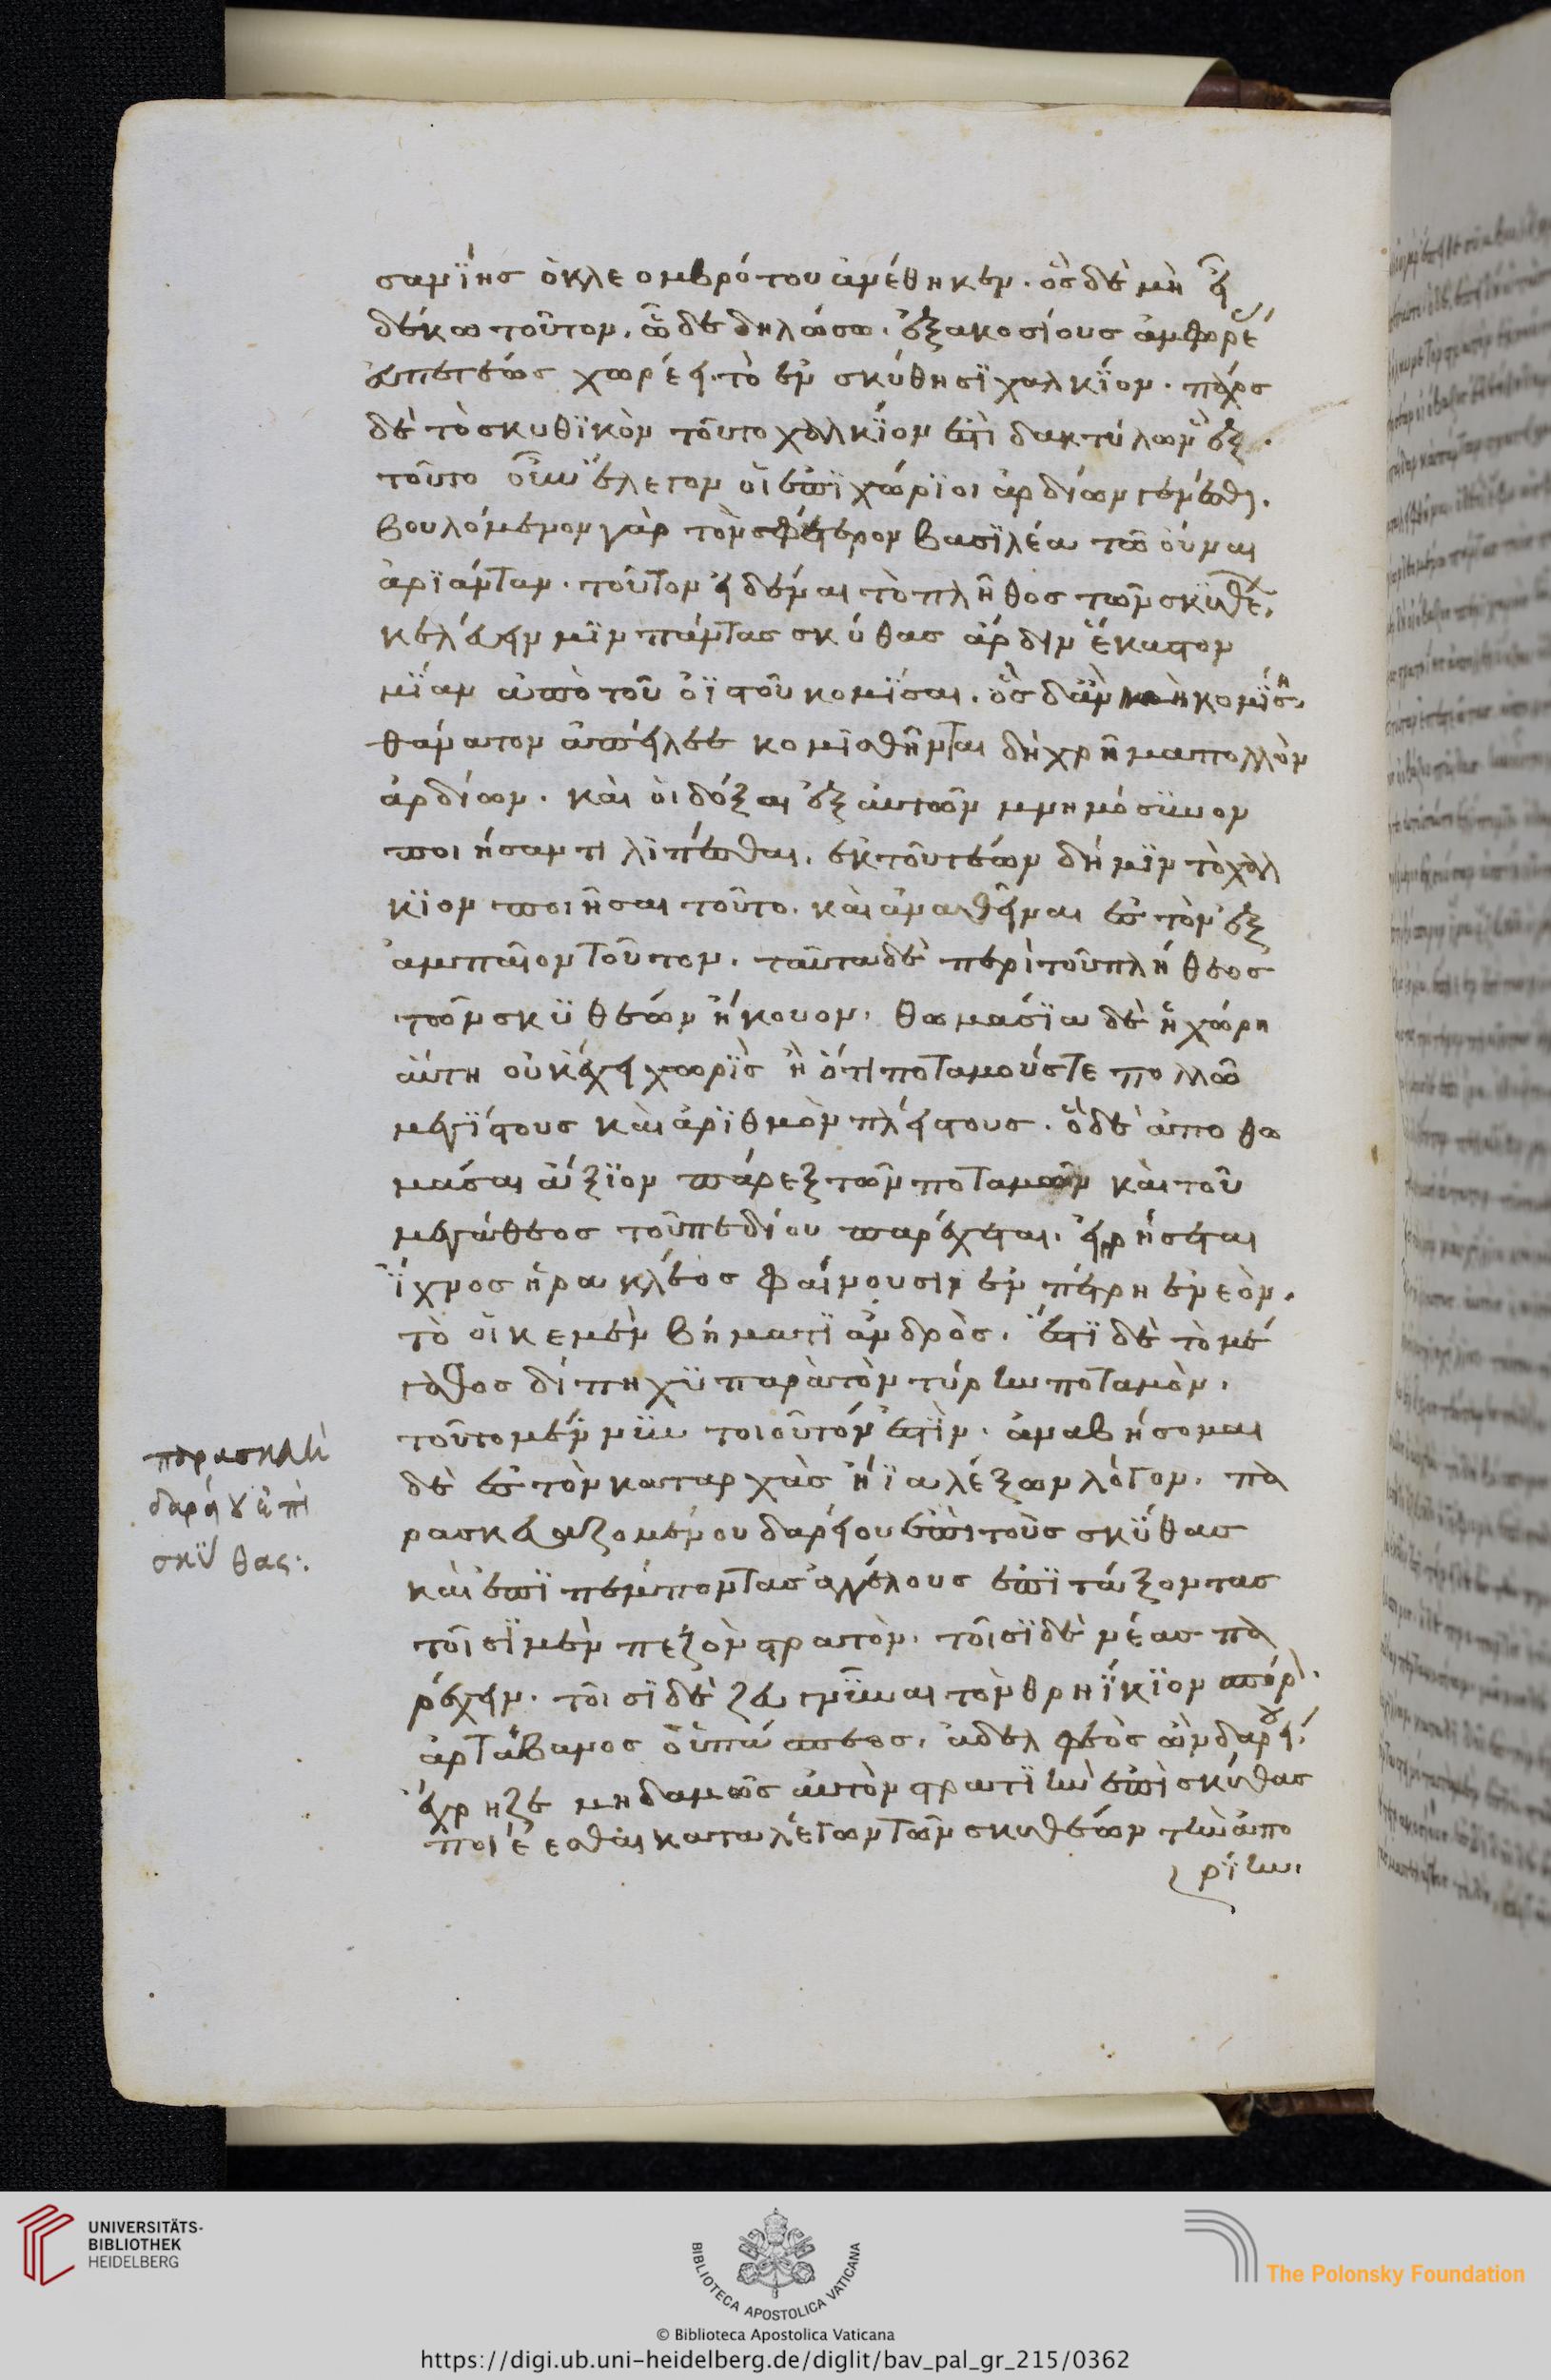 σανΐης ὁ κλεομβρότου ἀνέθηκεν. ὃς δὲ μὴ εἶ
δέ κω τοῦτον, ὧδε δηλώσω. ἑξακοσίους ἀμφορέ
εὐπετέως χωρέει τὸ ἐν σκύθησϊ χαλκΐον. πάχος
δὲ τὸ σκυθϊκὸν τοῦτο χαλκΐον ἐστὶ δακτύλων ἓξ.
τοῦτο ὦν ἔλεγον οἱ ἐπϊχώρϊοι ἀρδίων γενέσθαι.
βουλόμενον γὰρ τὸν σφέτερον βασϊλέα τῶ οὔνομα
ἀρϊάνταν. τοῦτον εἰδέναι τὸ πλῆθος τῶν σκϋθέ,
κελεύειν μϊν πάντας σκύθας ἄρδιν ἕκαστον
μΐαν ἀπὸ τοῦ ὀϊστοῦ κομΐσαι. ὃς δ' ἂν μὴ κομΐση
θάνατον ἀπείλεε κομϊσθῆναι δὴ χρῆμα πολλὸν
ἀρδίων. καὶ οἱ δόξαι ἐξ αὐτῶν μνημόσϋνον
ποιήσαντι λιπέσθαι. ἐκ τουτέων δή μϊν τὸ χαλ
κΐον ποιῆσαι τοῦτο. καὶ ἀναθεῖναι ἐς τὸν ἐξ
αμπαῖον τοῦτον. ταῦτα δὲ περὶ τοῦ πλήθεος
τῶν σκϋθέων ἤκουον. θωμάσϊα δὲ ἡ χώρη
αὕτη οὐκ ἔχει χωρὶς ἢ ὅτι ποταμούς τε πολλῶ
μεγΐστους καὶ ἀρϊθμὸν πλείστους. ὃ δὲ ἀποθω
μάσαι ἄξϊον πάρεξ τῶν ποταμῶν καὶ τοῦ
μεγάθεος τοῦ πεδίου παρέχεται. εἰρήσεται
ἴχνος ἡρακλέος φαίνουσιν ἐν πέτρη ἐνεόν.
τὸ οἶκε μὲν βήματϊ ἀνδρὸς. ἔστϊ δὲ τὸ μέ
γαθος δίπηχϋ παρὰ τὸν τύρην ποταμὸν.
τοῦτο μέν νϋν τοιοῦτόν ἐστὶν. ἀναβήσομαι
δὲ ἐς τὸν κατ' ἀρχὰς ἤϊα λέξων λόγον. πα
ρασκευαζομένου δαρείου ἐπὶ τοὺς σκύθας
καὶ ἐπϊπέμποντας ἀγγέλους ἐπϊτάξοντας
τοῖσϊ μὲν πεζὸν στρατὸν. τοῖσϊ δὲ νέας πα
ρέχειν. τοῖσϊ δὲ ζευγνῦναι τὸν θρηΐκϊον πόρ.
ἀρτάβανος ὁ ὑστάσπεος. ἀδελφεὸς ὢν δαρείου.
ἔχρηζε μηδαμῶς αὐτὸν στρατϊὴν ἐπὶ σκύθας
ποιέεσθαι καταλέγων τῶν σκυθέων τὴν ἀπο
ρΐην.
παρασκευὴ
δαρείου ἐπὶ
σκύθας:
UNIVERSITÄTS-
BIBLIOTHEK
HEIDELBERG
BIBLIOTECA APOSTOLICA VATICANA
The Polonsky Foundation
© Biblioteca Apostolica Vaticana
https://digi.ub.uni-heidelberg.de/diglit/bav_pal_gr_215/0362